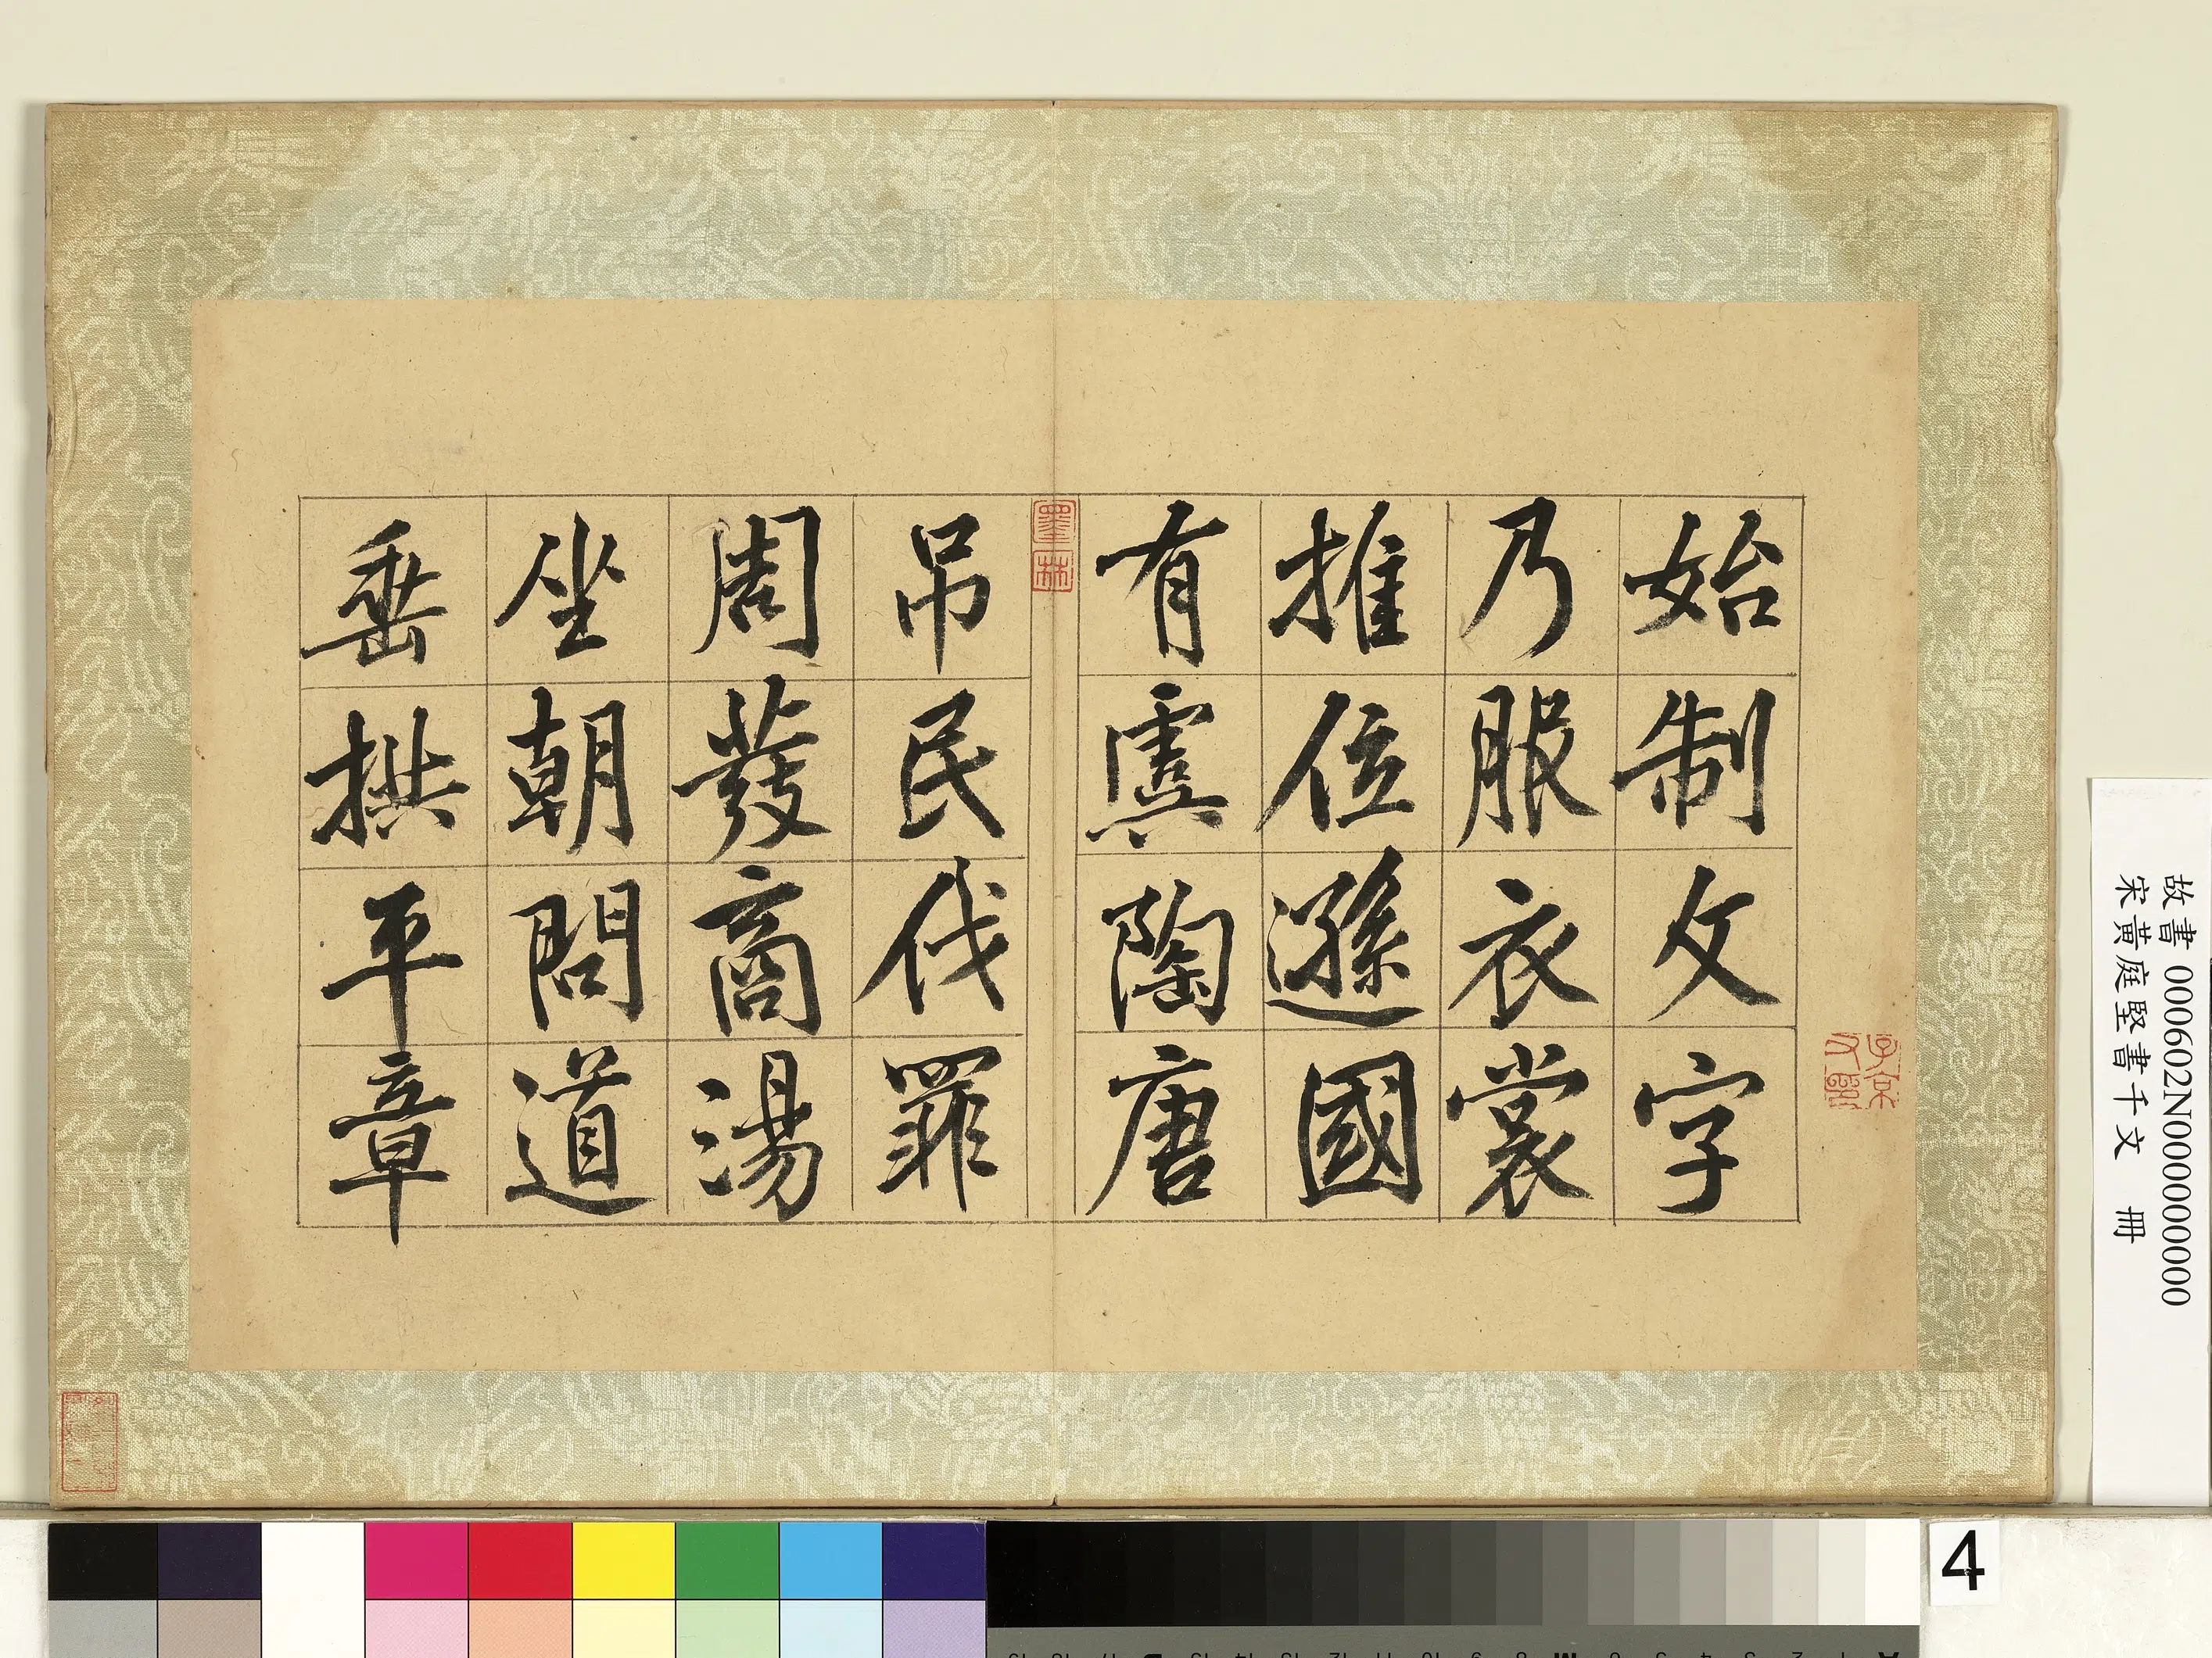 始制文字
乃服衣裳
推位遜國
有虞陶唐
墨林
弔民伐罪
周發商湯
坐朝問道
垂拱平章
故書 000602N000000000
宋黃庭堅書千文 冊
4